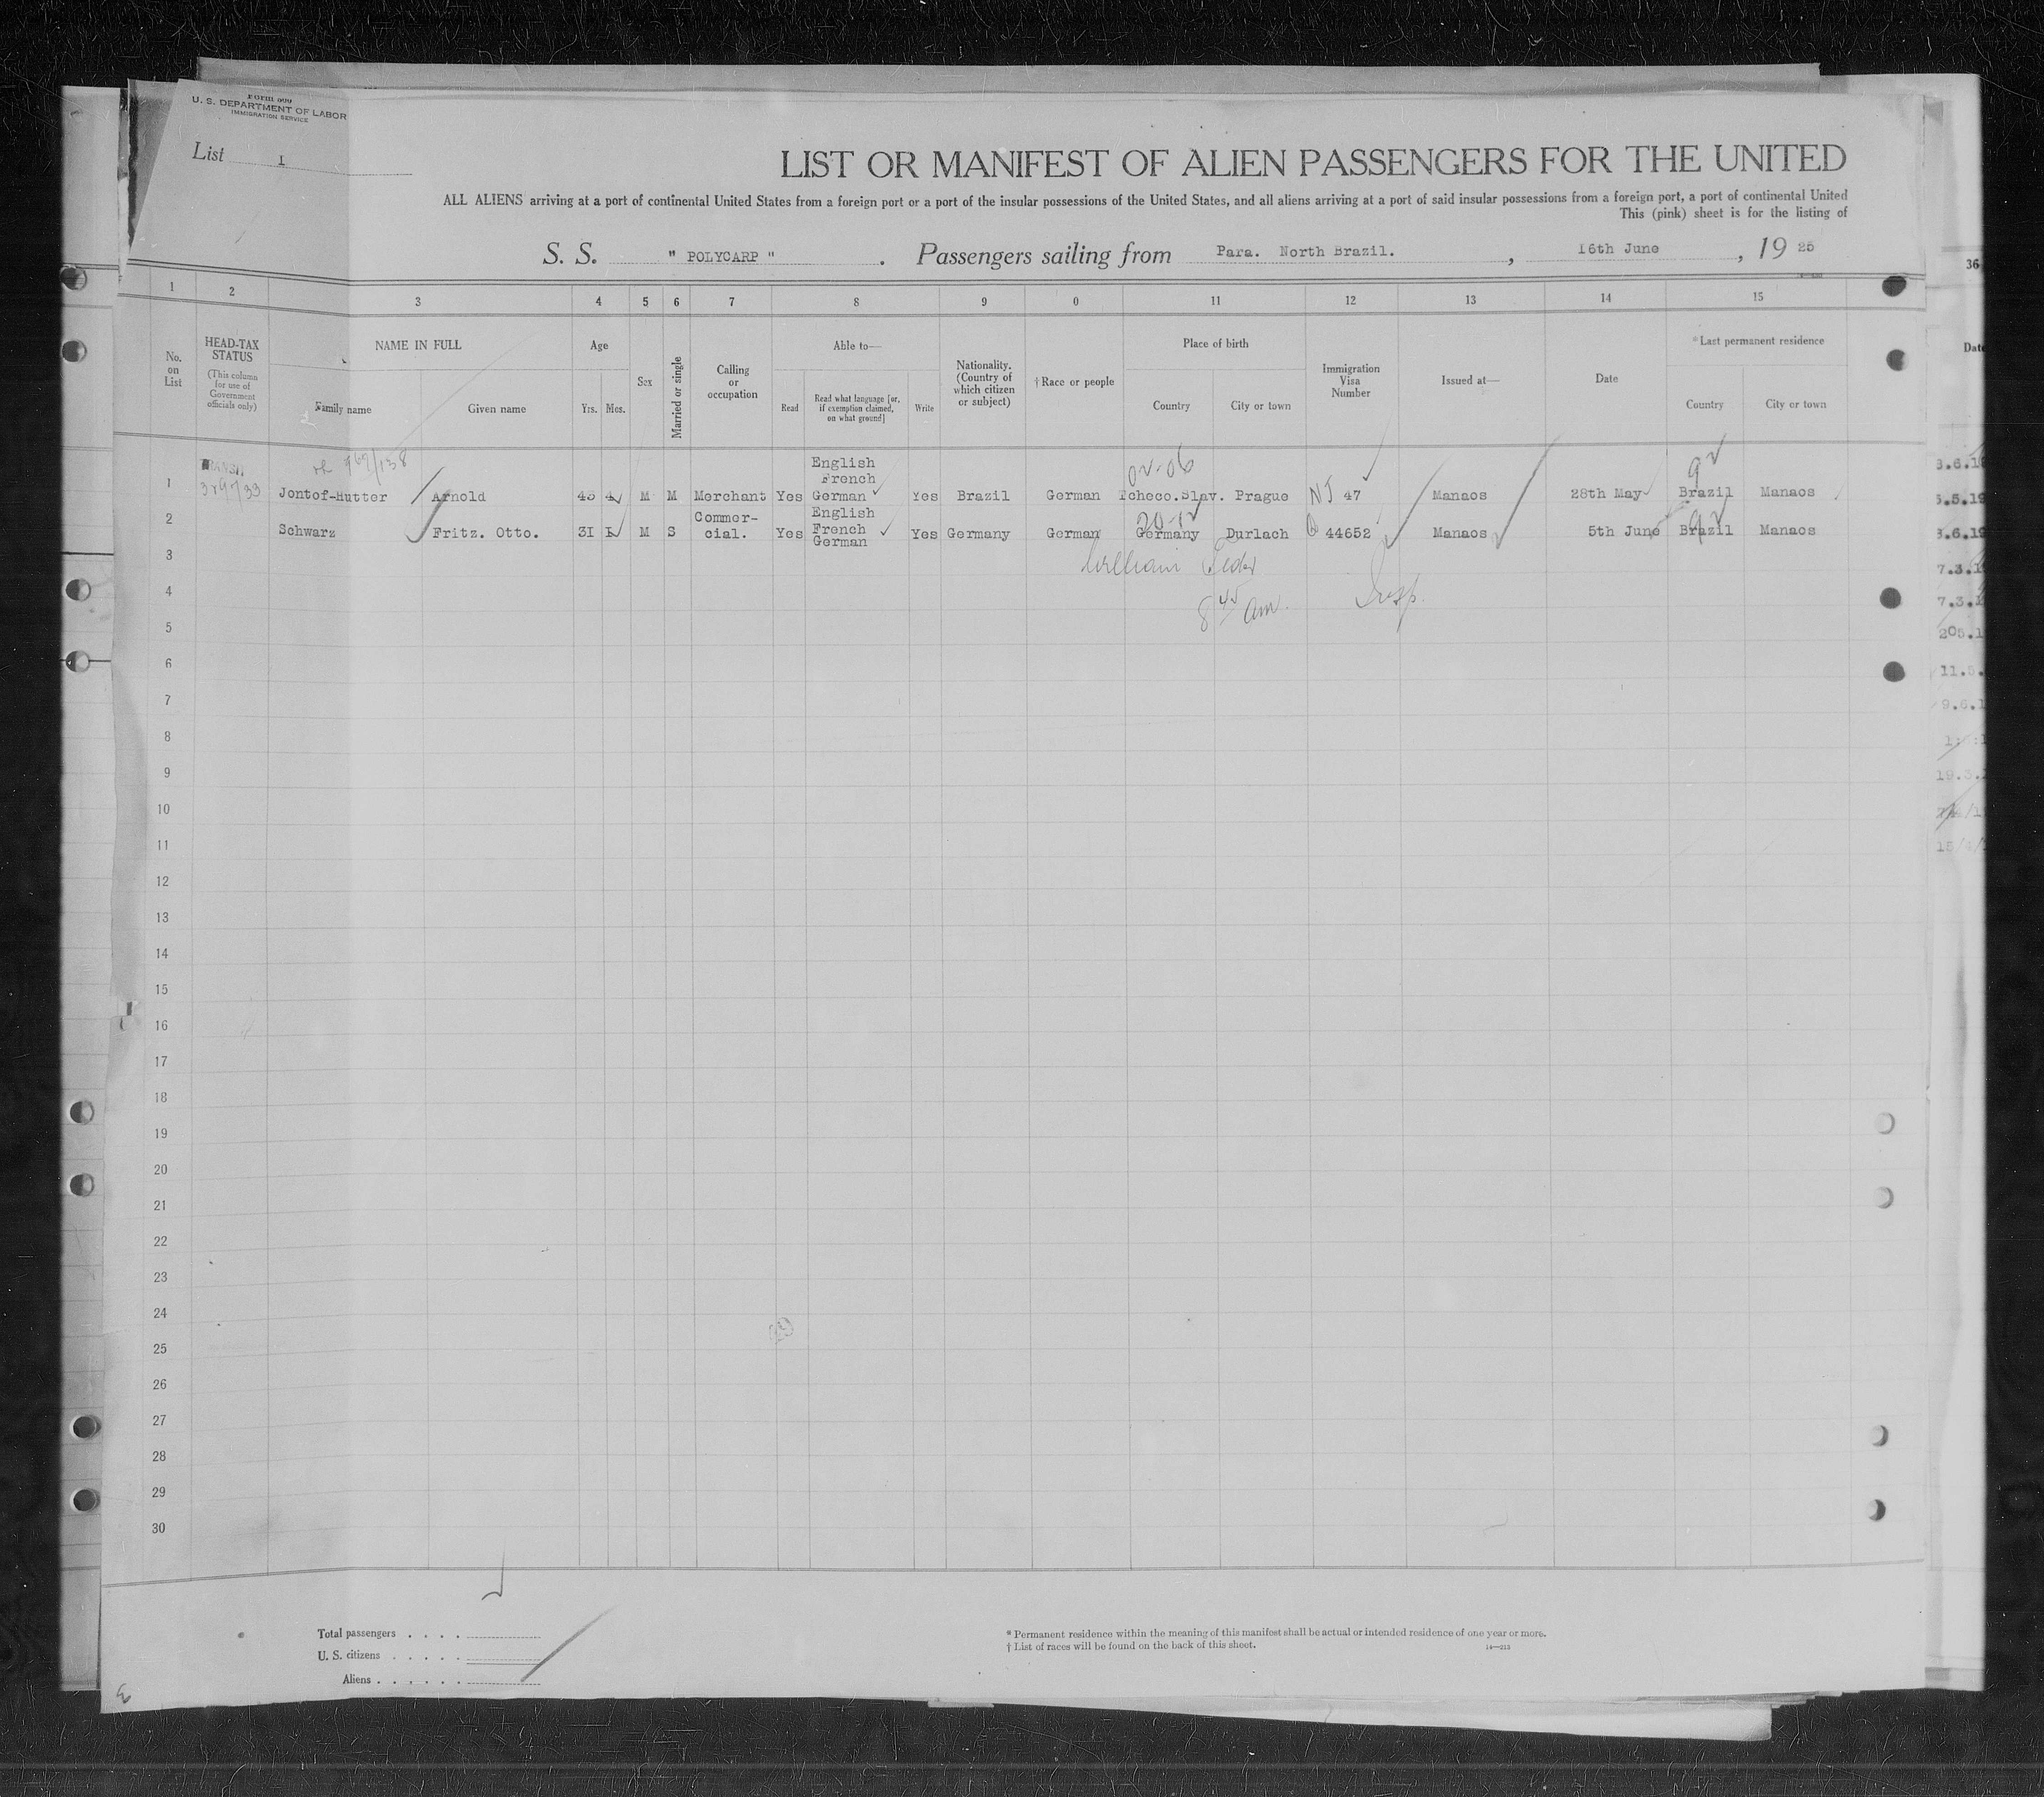 Form 500
U. S. DEPARTMENT OF LABOR
IMMIGRATION SERVICE
List 1
LIST OR MANIFEST OF ALIEN PASSENGERS FOR THE UNITED
ALL ALIENS arriving at a port of continental United States from a foreign port or a port of the insular possessions of the United States, and all aliens arriving at a port of said insular possessions from a foreign port, a port of continental United
This (pink) sheet is for the listing of
S. S. " POLYCARP ". Passengers sailing from Para. North Brazil. , 16th June , 19 25
1 2 3 4 5 6 7 8 9 0 11 12 13 14 15
36
No. on List
HEAD-TAX STATUS
(This column for use of Government officials only)
NAME IN FULL
Family name
Given name
Age
Yrs. Mos.
Sex
Married or single
Calling or occupation
Able to—
Read
Read what language [or, if exemption claimed, on what ground]
Write
Nationality. (Country of which citizen or subject)
† Race or people
Place of birth
Country
City or town
Immigration Visa Number
Issued at—
Date
* Last permanent residence
Country
City or town
Date
1 TRANSIT Jontof-Hutter Arnold M M Merchant Yes English French German Yes Brazil German Tcheco.Slav. Prague NJ 47 Manaos 28th May Brazil Manaos
2 Schwarz Fritz. Otto. 31 M S Commer-cial. Yes English French German Yes Germany German Germany Durlach Q 44652 Manaos 5th June Brazil Manaos
3
William
4
8 45 am. Insp.
5
6
7
8
9
10
11
12
13
14
15
16
17
18
19
20
21
22
23
24
25
26
27
28
29
30
Total passengers
U. S. citizens
Aliens
* Permanent residence within the meaning of this manifest shall be actual or intended residence of one year or more.
† List of races will be found on the back of this sheet.
14—213